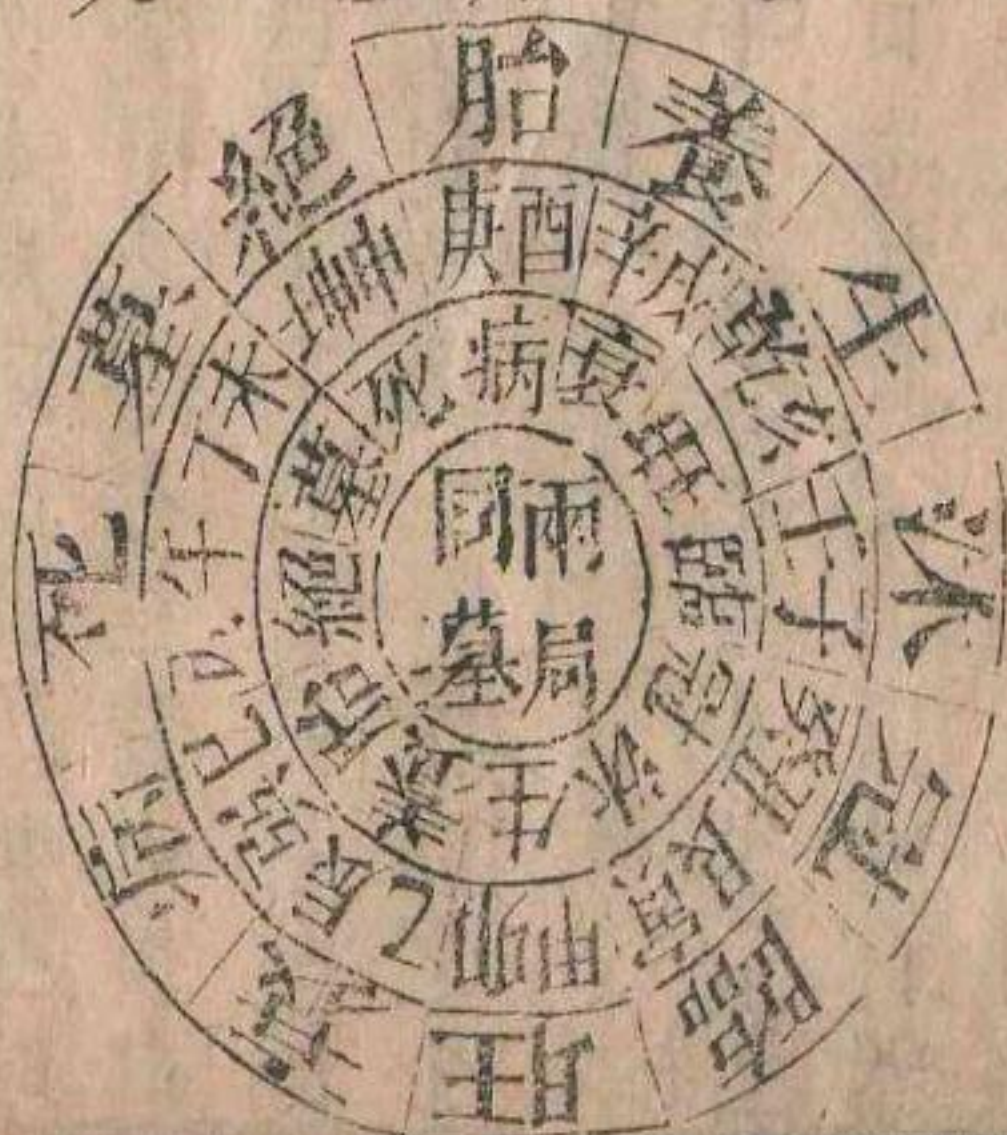 胎養生沐冠臨旺衰病死墓絕
庚酉辛戌乾亥壬子癸丑艮寅甲卯乙辰巽巳丙午丁未坤申
病衰旺臨冠沐生養胎絕墓死
兩局
同墓